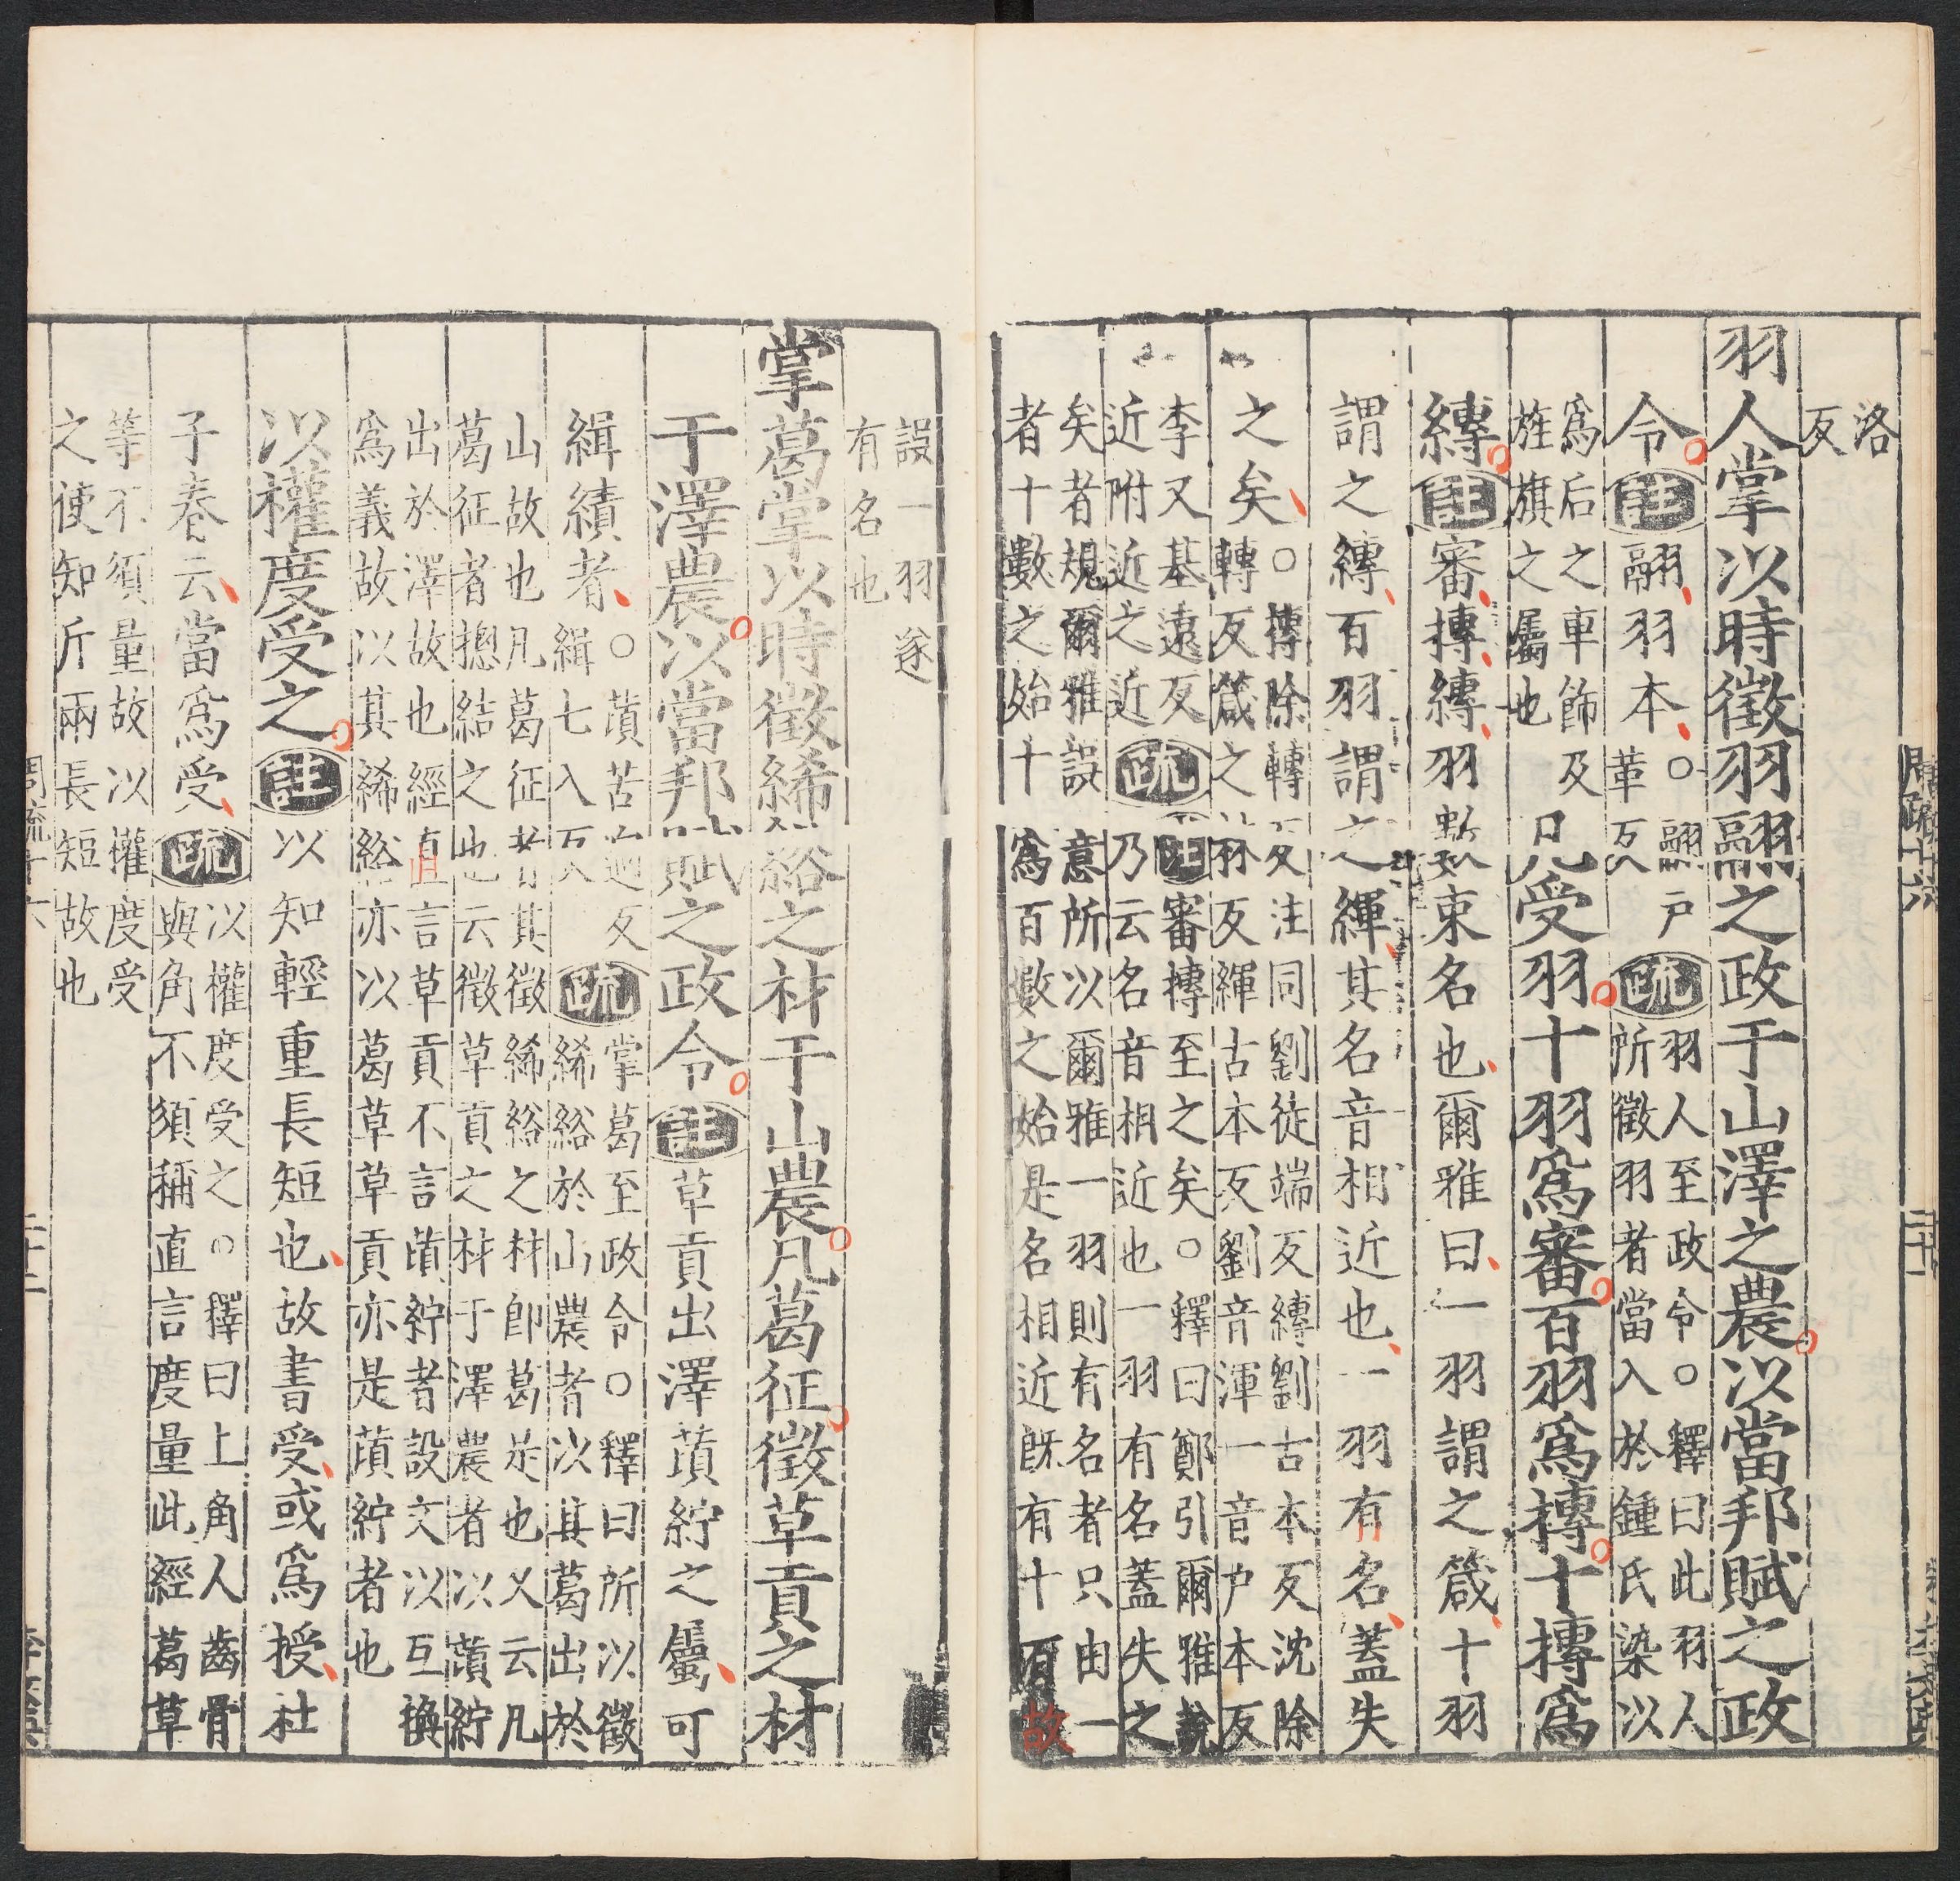 洛
反
羽人掌以時徵羽翮之政于山澤之農以當邦賦之政
令註翮羽本○翮戶
革反疏羽人至政令○釋曰此羽人
所徵羽者當入於鍾氏染以
爲后之車飾及
旌旗之屬也凡受羽十羽爲審百羽爲摶十摶爲
縛註審摶縛羽數束名也爾雅曰一羽謂之箴十羽
謂之縛百羽謂之緷其名音相近也一羽有名蓋失
之矣○摶除轉反注同劉徒端反縛劉古本反沈除
轉反箴之羽反緷古本反劉音渾一音戶本反
李又基遠反
近附近之近疏註審摶至之矣○釋曰鄭引爾雅說
乃云名音相近也一羽有名蓋失之
矣者規爾雅誤意所以爾雅一羽則有名者只由一
者十數之始十爲百數之始是名相近旣有十百故
誤一羽遂
有名也
掌葛掌以時徵絺綌之材于山農凡葛征徵草貢之材
于澤農以當邦賦之政令註草貢出澤蕡紵之屬可
緝績者○蕡苦迥反
緝七入反疏掌葛至政令○釋曰所以徵
絺綌於山農者以其葛出於
山故也凡葛征者其徵絺綌之材卽葛是也又云凡
葛征者揔結之也云徵草貢之材于澤農者以蕡紵
出於澤故也經直言草貢不言蕡紵者設文以互換
爲義故以其絺綌亦以葛草草貢亦是蕡紵者也
以權度受之註以知輕重長短也故書受或爲授杜
子春云當爲受疏以權度受之○釋曰上角人齒骨
與角不須稱直言度量此經葛草
等不須量故以權度受
之使知斤兩長短故也
周疏十六
二十二